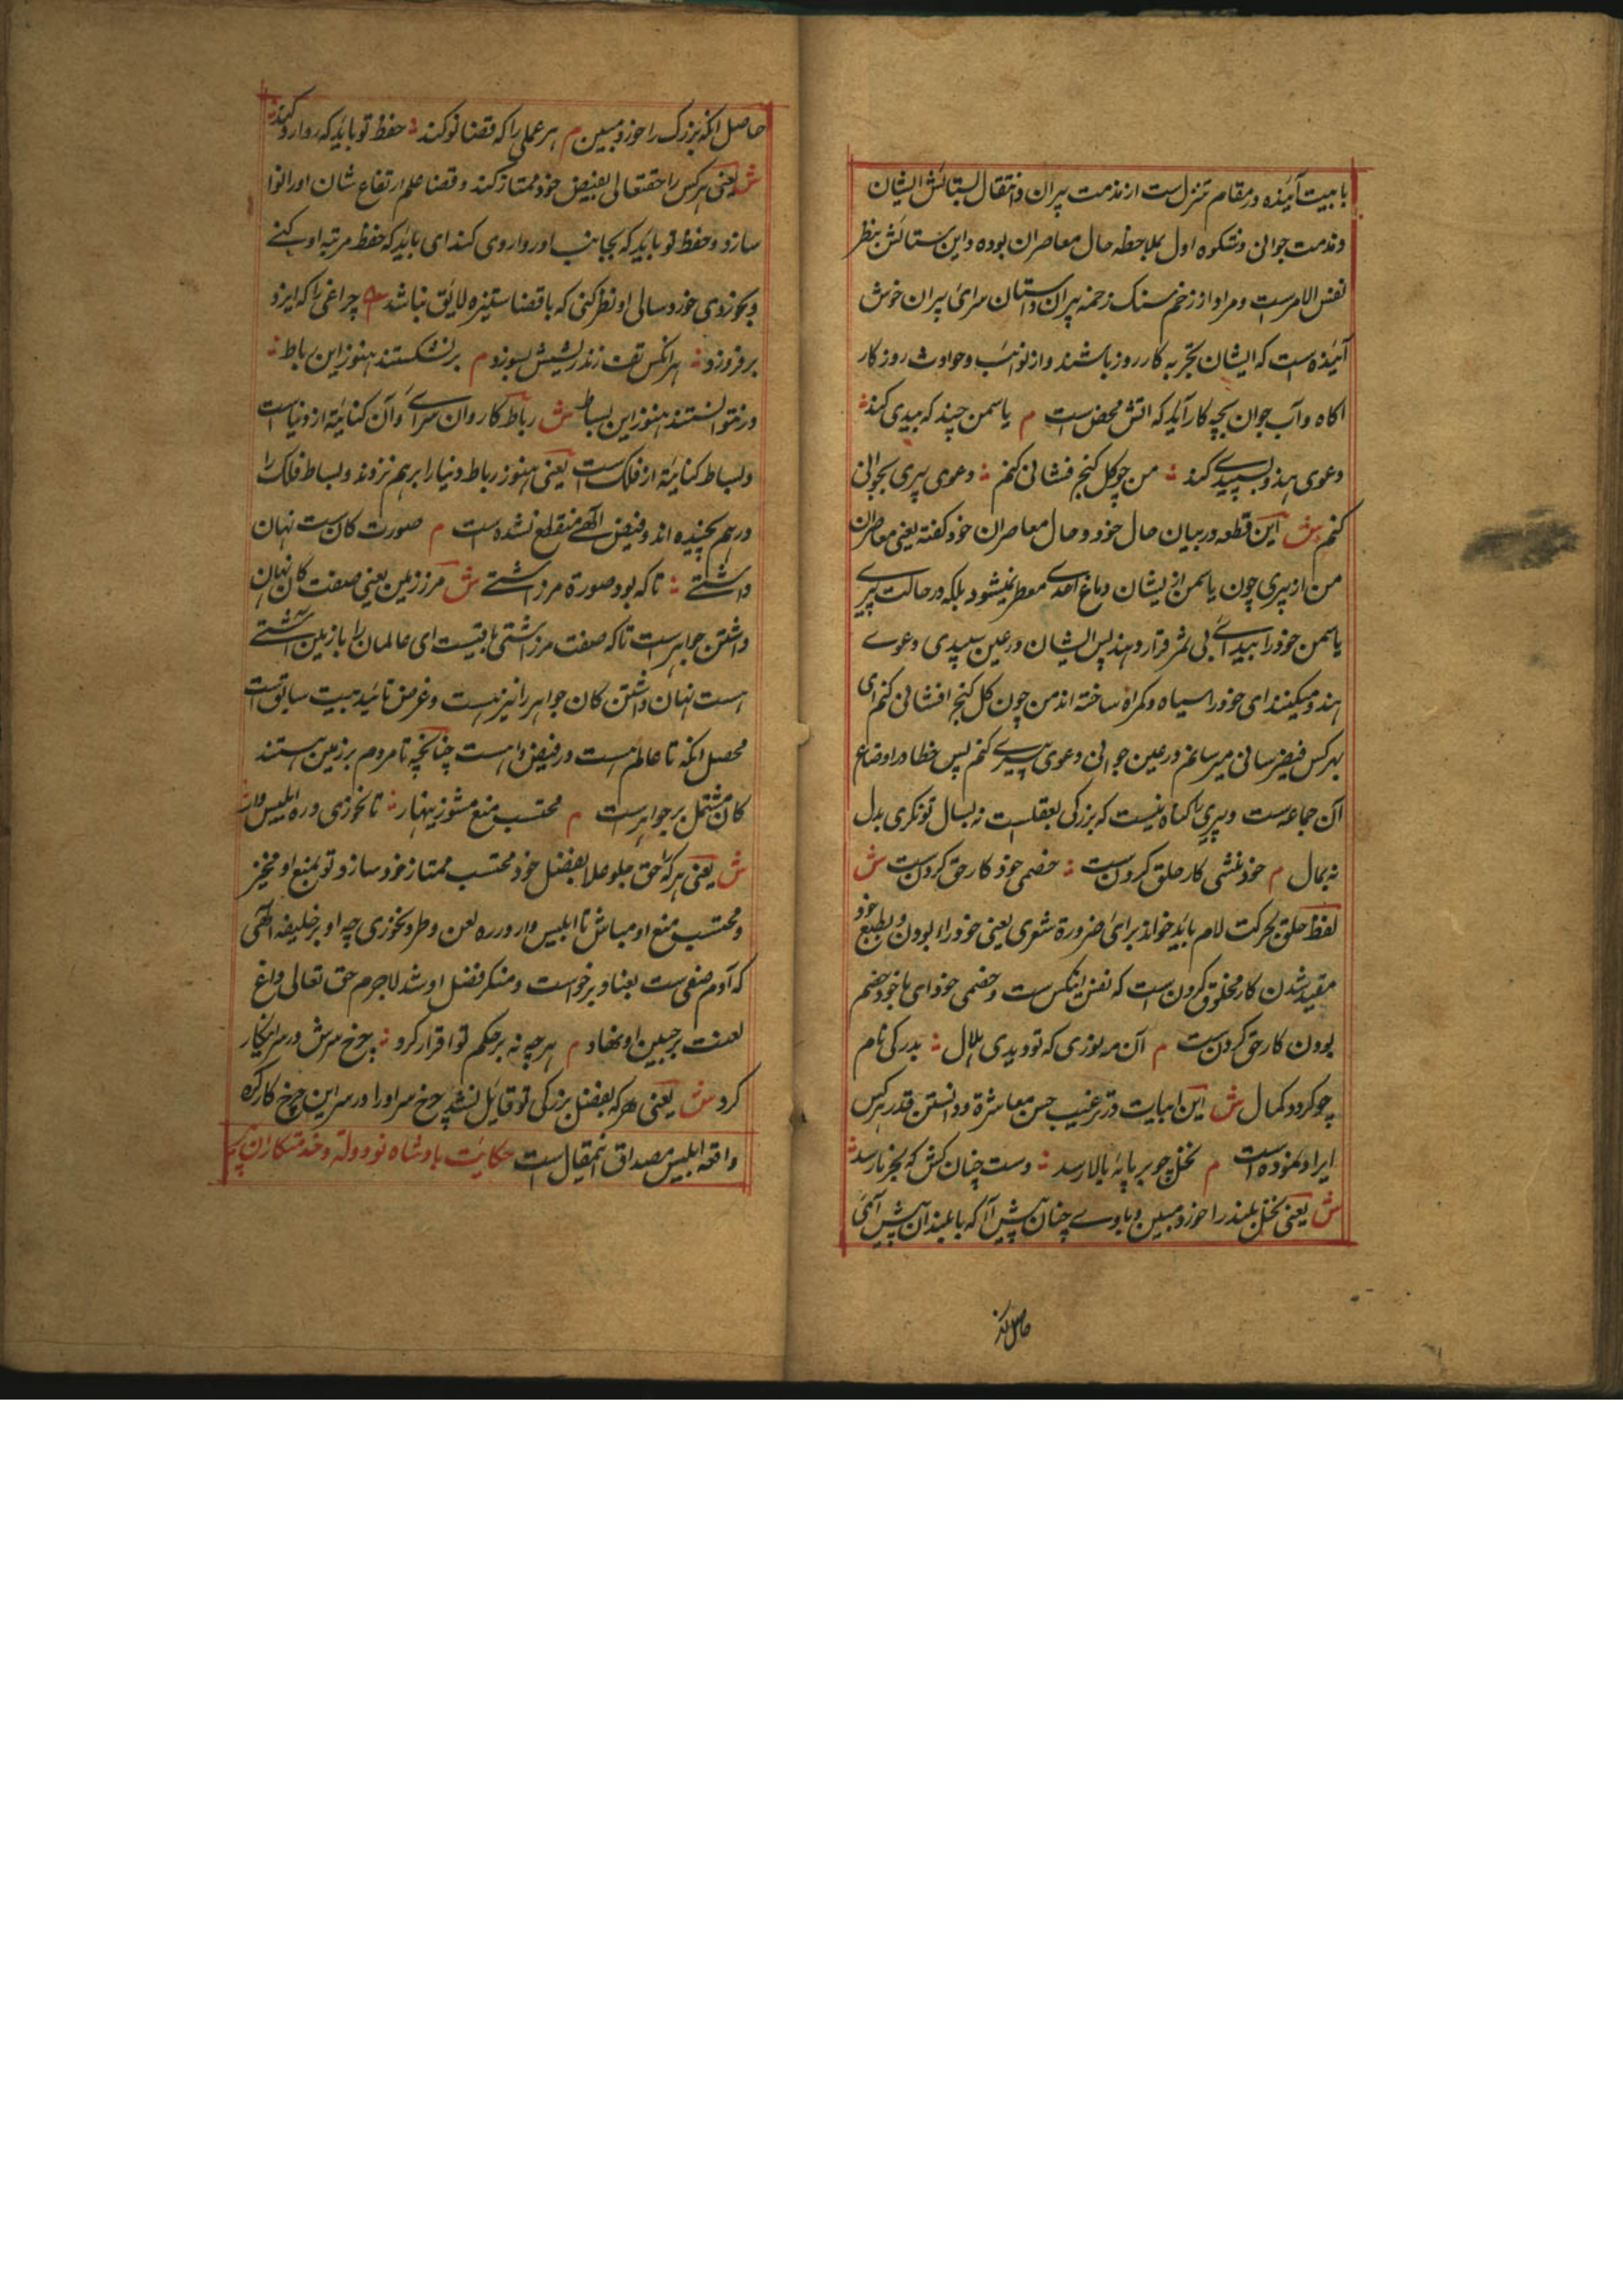 با بیت آینده در مقام تنزل است از مذمت پیران و انتقال بستائش ایشان
و مذمت جوانی و شکوه اول بملاحظه حال معاصران بوده و این ستائش بنظر
نفس الامرست و مراد از زخم سنک زخمه پیران و داستان سرای پیران خوش
آینده است که ایشان بتجربه کار روز باشند و از نوائب و حوادث روزکار
اکاه و آب جوان بچه کار آید که اتش محض است م یاسمن چند که بیدی کند
دعوی هندو بسپیدے کند من چو کل کنج فشانی کنم دعوی پیری بجوانی
کنم ش این قطعه در بیان حال خود و حال معاصران خود کفته یعنی معاصران
من از پیری چون یاسمن از یشان دماغ احدے معطر نمیشود بلکه در حالت پیرے
یاسمن خود را ببید بی ثمر قرار دهند پس ایشان در عین سپیدی دعوے
هندو میکنند ای خود را سیاه و کمراه ساخته اند من چون کل کنج افشانی کنم ای
بهرکس فیض رسانی میرسانم و در عین جوانی دعوی پیرے کنم پس خطا در اوضاع
آن جماعه ست و پیری را کناه نیست که بزرکی بعقلست نه بسال تونکری بدل
نه بمال م خود منشی کار خلق کردن ست خصمی خود کار حق کردن ست ش
لفظ خلق بحرکت لام باید خواند برای ضرورة شعری یعنی خود را بودن و بطبع خود
مقید شدن کار مخلوق کردن است که نفس اینکس ست و خصمی خود ای با خود خصم
بودن کار حق کردن ست م آن مه نوزی که تو دیدی هلال بدر کی نام
چو کردد کمال ش این ابیات در ترغیب حسن معاشرة و دانستن قدر هرکس
ایراد نموده است م نخل چو بر پایه بالا رسد دست چنان کش که بخرما رسد
ش یعنی نخل بلند را خورد مبین و باوے چنان پیش آ که با بلندان پیش آئی
حاصل انکه
حاصل انکه بزرک را خورد مبین م هر عملی را که قضا نو کند حفظ تو باید که روارو کند
ش یعنی هرکس را حقتعالی بفیض خود ممتاز کند و قضا علم ارتفاع شان او را نوا
سازد و حفظ تو باید که بجانب او روا روی کند ای باید که حفظ مرتبه او بکنے
و بخوردی خورد سالی او نظر نکنی که با قضا ستیزه لایق نباشد م چراغی را که ایزد
برفروزد هرانکس تف زند ریشش بسوزد م برنشکستند هنوز این رباط
درنتوانستند هنوز این بساط ش رباط کاروان سراے و آن کنایة از دنیاست
و بساط کنایة از فلک ست یعنی هنوز رباط دنیا را برهم نزدند و بساط فلک را
درهم نپیچیده اند و فیض الهے منقطع نشده ست م صورت کان ست نهان
داشتے تا که بود صورة مرز اشتے ش مرز زمین یعنی صفت کان نهان
داشتن جواهرست تا که صفت مرز اشتی باقیست ای عالمان را با زمین اشتے
هست نهان داشتن کان جواهر را نیز هست و غرض تائید بیت سابق ست
محصل انکه تا عالم هست در فیض وا هست چنانچه تا مردم بر زمین هستند
کان مشتمل بر جواهرست م محتسب منع مشو زینهار تا نخوری دره ابلیس وار
ش یعنی هر که را حق جلوعلا بفضل خود محتسب ممتاز خود سازد تو بمنع او مخیز
و محتسب منع او مباش تا ابلیس وار دره لعن و طرد نخوری چه او بر خلیفه الهی
که آدم صفی ست بعناد برخواست و منکر فضل او شد لاجرم حق تعالی داغ
لعنت بر جبین او نهاد م هر چه نه بر حکم تو اقرار کرد چرخ سرش در سر انکار
کرد ش یعنی هر که بفضل بزرکی تو قایل نشد چرخ سر او را در سر این چرخ کار کرد
واقعه ابلیس مصداق اینمقال است حکایت بادشاه نو دولة و خدمتکاران